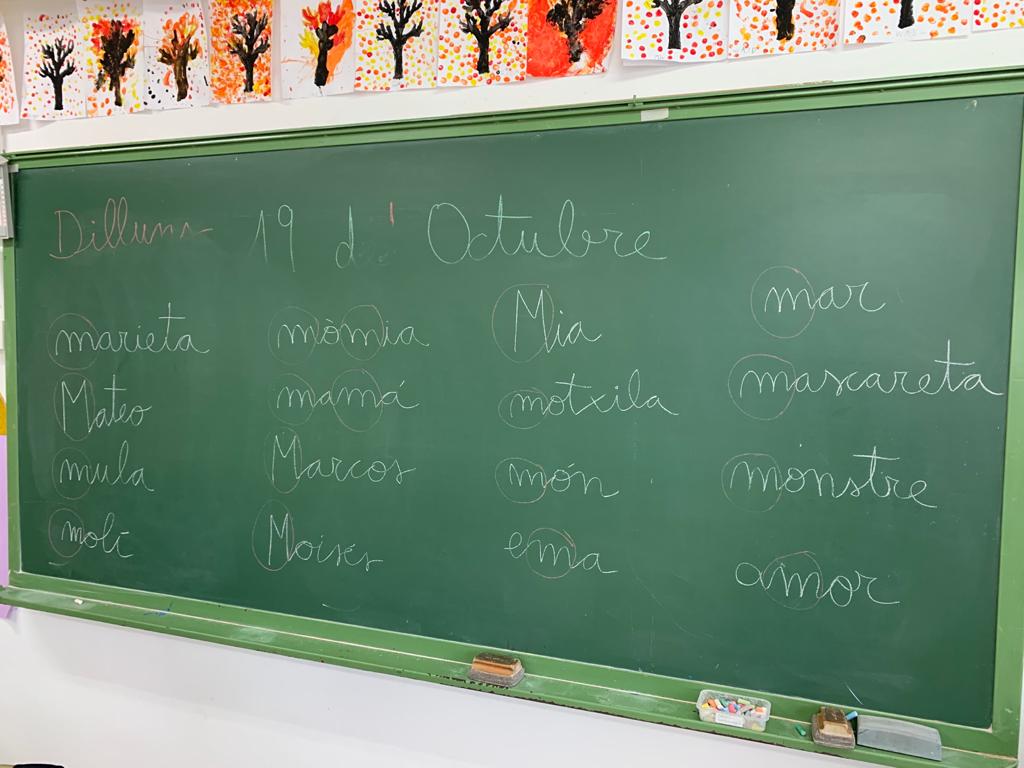 Dilluns 19 d' Octubre
marieta
Mateo
mula
molí
mòmia
mamá
Marcos
Moisés
Mia
motxila
món
ema
mar
mascareta
monstre
amor